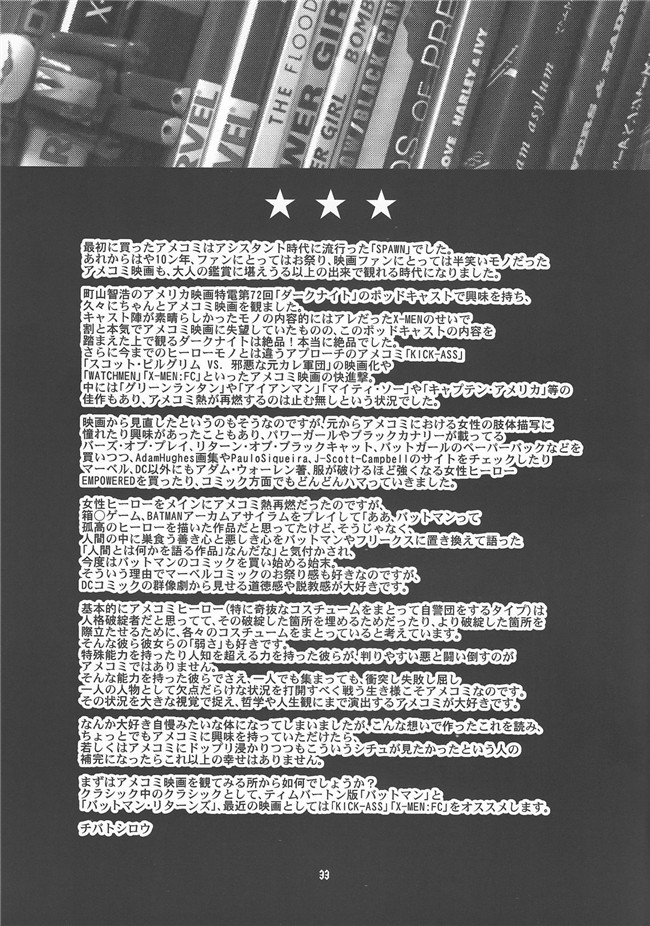 X-
VEL
RVEL
THE FLOOD
WER GIRL
ER GIRL BOMB
OW/BLACK CAN
DS OF PRE
OVE HARLEY & IVY
am asylum
VERS & MADM
★ ★ ★
最初に買ったアメコミはアシスタント時代に流行った「SPAWN」でした。
あれからはや10ン年、ファンにとってはお祭り、映画ファンにとっては半笑いモノだった
アメコミ映画も、大人の鑑賞に堪えうる以上の出来で観れる時代になりました。
町山智浩のアメリカ映画特電第72回「ダークナイト」のポッドキャストで興味を持ち、
久々にちゃんとアメコミ映画を観ました。
キャスト陣が素晴らしかったモノの内容的にはアレだったX-MENのせいで、
割と本気でアメコミ映画に失望していたものの、このポッドキャストの内容を
踏まえた上で観るダークナイトは絶品！本当に絶品でした。
さらに今までのヒーローモノとは違うアプローチのアメコミ「KICK-ASS」
「スコット・ピルグリム VS. 邪悪な元カレ軍団」の映画化や
「WATCHMEN」「X-MEN:FC」といったアメコミ映画の快進撃。
中には「グリーンランタン」や「アイアンマン」「マイティ・ソー」や「キャプテン・アメリカ」等の
佳作もあり、アメコミ熱が再燃するのは止む無しという状況でした。
映画から見直したというのもそうなのですが、元からアメコミにおける女性の肢体描写に
憧れたり興味があったこともあり、パワーガールやブラックカナリーが載ってる
バーズ・オブ・プレイ、リターン・オブ・ブラックキャット、バットガールのペーパーバックなどを
買いつつ、AdamHughes画集やPauloSiqueira、J-Scott-Campbellのサイトをチェックしたり
マーベル、DC以外にもアダム・ウォーレン著、服が破けるほど強くなる女性ヒーロー
EMPOWEREDを買ったり、コミック方面でもどんどんハマっていきました。
女性ヒーローをメインにアメコミ熱再燃だったのですが、
箱〇ゲーム、BATMANアーカムアサイラムをプレイして「ああ、バットマンって
孤高のヒーローを描いた作品だと思ってたけど、そうじゃなく、
人間の中に巣食う善き心と悪しき心をバットマンやフリークスに置き換えて語った
「人間とは何かを語る作品」なんだな」と気付かされ、
今度はバットマンのコミックを買い始める始末。
そういう理由でマーベルコミックのお祭り感も好きなのですが、
DCコミックの群像劇から見せる道徳感や説教感が大好きです。
基本的にアメコミヒーロー（特に奇抜なコスチュームをまとって自警団をするタイプ）は
人格破綻者だと思ってて、その破綻した箇所を埋めるためだったり、より破綻した箇所を
際立たせるために、各々のコスチュームをまとっていると考えています。
そんな彼ら彼女らの「弱さ」も好きです。
特殊能力を持ったり人知を超える力を持った彼らが、判りやすい悪と闘い倒すのが
アメコミではありません。
そんな能力を持った彼らでさえ、一人でも集まっても、衝突し失敗し屈し
一人の人物として欠点だらけな状況を打開すべく戦う生き様こそアメコミなのです。
その状況を大きな視覚で捉え、哲学や人生観にまで演出するアメコミが大好きです。
なんか大好き自慢みたいな体になってしまいましたが、こんな想いで作ったこれを読み、
ちょっとでもアメコミに興味を持っていただけたら、
若しくはアメコミにドップリ浸かりつつもこういうシチュが見たかったという人の
補完になったらこれ以上の幸せはありません。
まずはアメコミ映画を観てみる所から如何でしょうか？
クラシック中のクラシックとして、ティムバートン版「バットマン」と
「バットマン・リターンズ」、最近の映画としては「KICK-ASS」「X-MEN:FC」をオススメします。
チバトシロウ
33